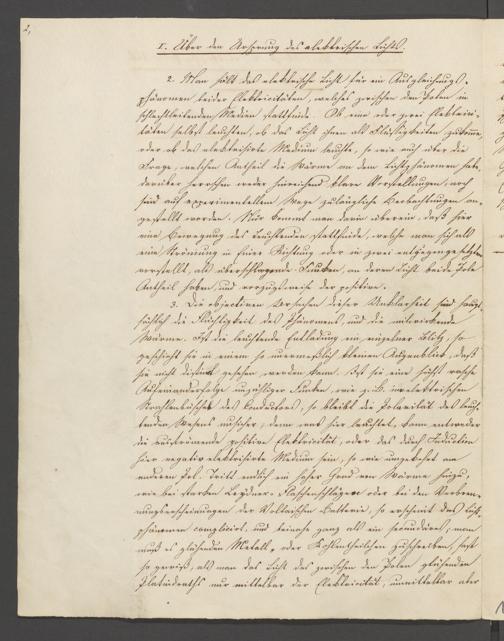 2,
I. Über den Ursprung des elektrischen Lichts.
2. Man hält das elektrische Licht für ein Ausgleichungs-
phänomen beider Elektricitäten, welches zwischen den Polen in
schlechtleitenden Medien stattfinde. Ob eine oder zwei Elektrici-
täten selbst leuchten, ob das Licht ihnen als Flüssigkeiten zukomme
oder ob das elektrisirte Medium leuchte, so wie auch über die
Frage, welchen Antheil die Wärme an dem Lichtphänomen habe,
darüber herrschen weder hinreichend klare Vorstellungen, noch
sind auf experimentellem Wege zulängliche Beobachtungen an-
gestellt worden. Nur kommt man darin überein, daß hier
eine Bewegung des Leuchtenden stattfinde, welche man sich als
eine Strömung in einer Richtung oder in zwei entgegengesetzten
vorstellt, als überschlagende Funken, an deren Licht beide Pole
Antheil haben, und vorzugsweise der positive.
3. Die objectiven Ursachen dieser Unklarheit sind haupt-
sächlich die Flüchtigkeit des Phänomens, und die mitwirkende
Wärme. Ist die leuchtende Entladung ein einzelner Blitz, so
geschieht sie in einem so unermeßlich kleinen Augenblick, daß
sie nicht distinct gesehen werden kann. Ist sie eine höchst rasche
Aufeinanderfolge unzähliger Funken, wie z. B. im elektrischen
Strahlenbüschel des Conductors, so bleibt die Polarität des leuch-
tenden Wesens unsicher; denn was hier leuchtet, kann entweder
die ausströmende positive Elektricität, oder das durch Induction
hier negativ elektrisirte Medium sein, so wie umgekehrt am
anderen Pol. Tritt endlich ein hoher Grad von Wärme hinzu,
wie bei starken Leydner-Flaschenschlägen oder bei den Verbren-
nungserscheinungen der Voltaischen Batterie, so erscheint das Licht-
phänomen complicirt, und beinahe ganz als ein secundäres, man
muß es glühenden Metall- oder Kohlentheilchen zuschreiben, fast
so gewiß, als man das Licht des zwischen den Polen glühenden
Platindraths nur mittelbar der Elektricität, unmittelbar aber